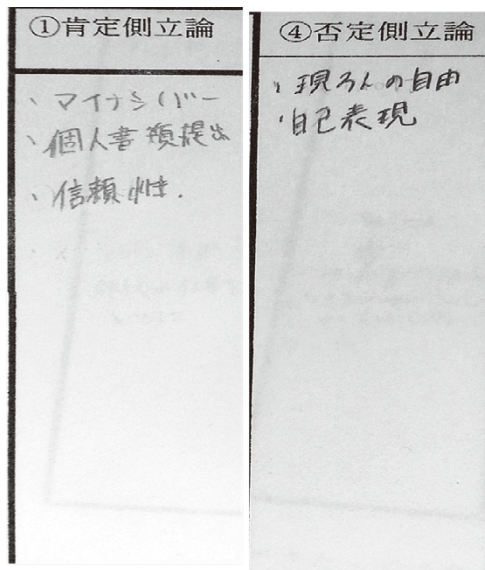 ①肯定側立論
・マイナンバー
・個人書類提出
・信頼性.
④否定側立論
の自由
・自己表現